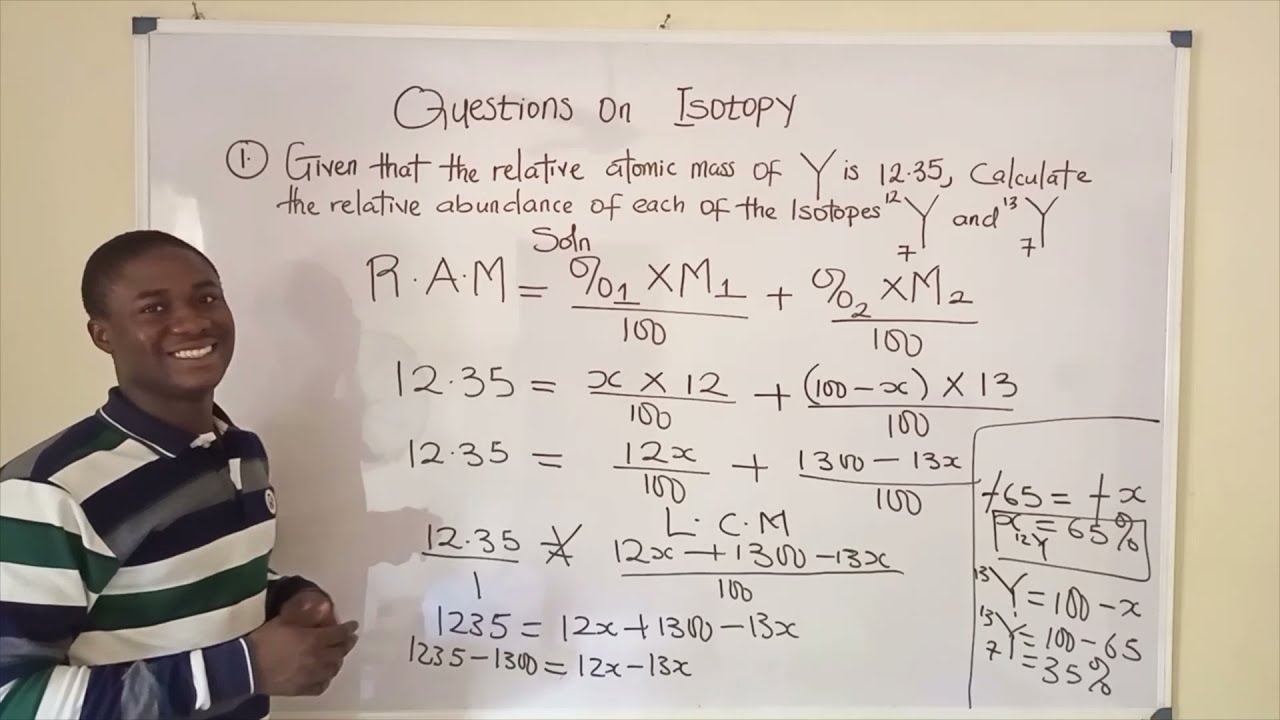 Questions on Isotopy
1. Given that the relative atomic mass of Y is 12.35, Calculate
the relative abundance of each of the Isotopes ¹²₇Y and ¹³₇Y
Soln
R.A.M = %₁ X M₁ / 100 + %₂ X M₂ / 100
12.35 = x X 12 / 100 + (100 - x) X 13 / 100
12.35 = 12x / 100 + 1300 - 13x / 100
L.C.M
12.35 / 1 = 12x + 1300 - 13x / 100
1235 = 12x + 1300 - 13x
1235 - 1300 = 12x - 13x
-65 = -x
x = 65%
¹²Y
¹³Y = 100 - x
¹³₇Y = 100 - 65
= 35%